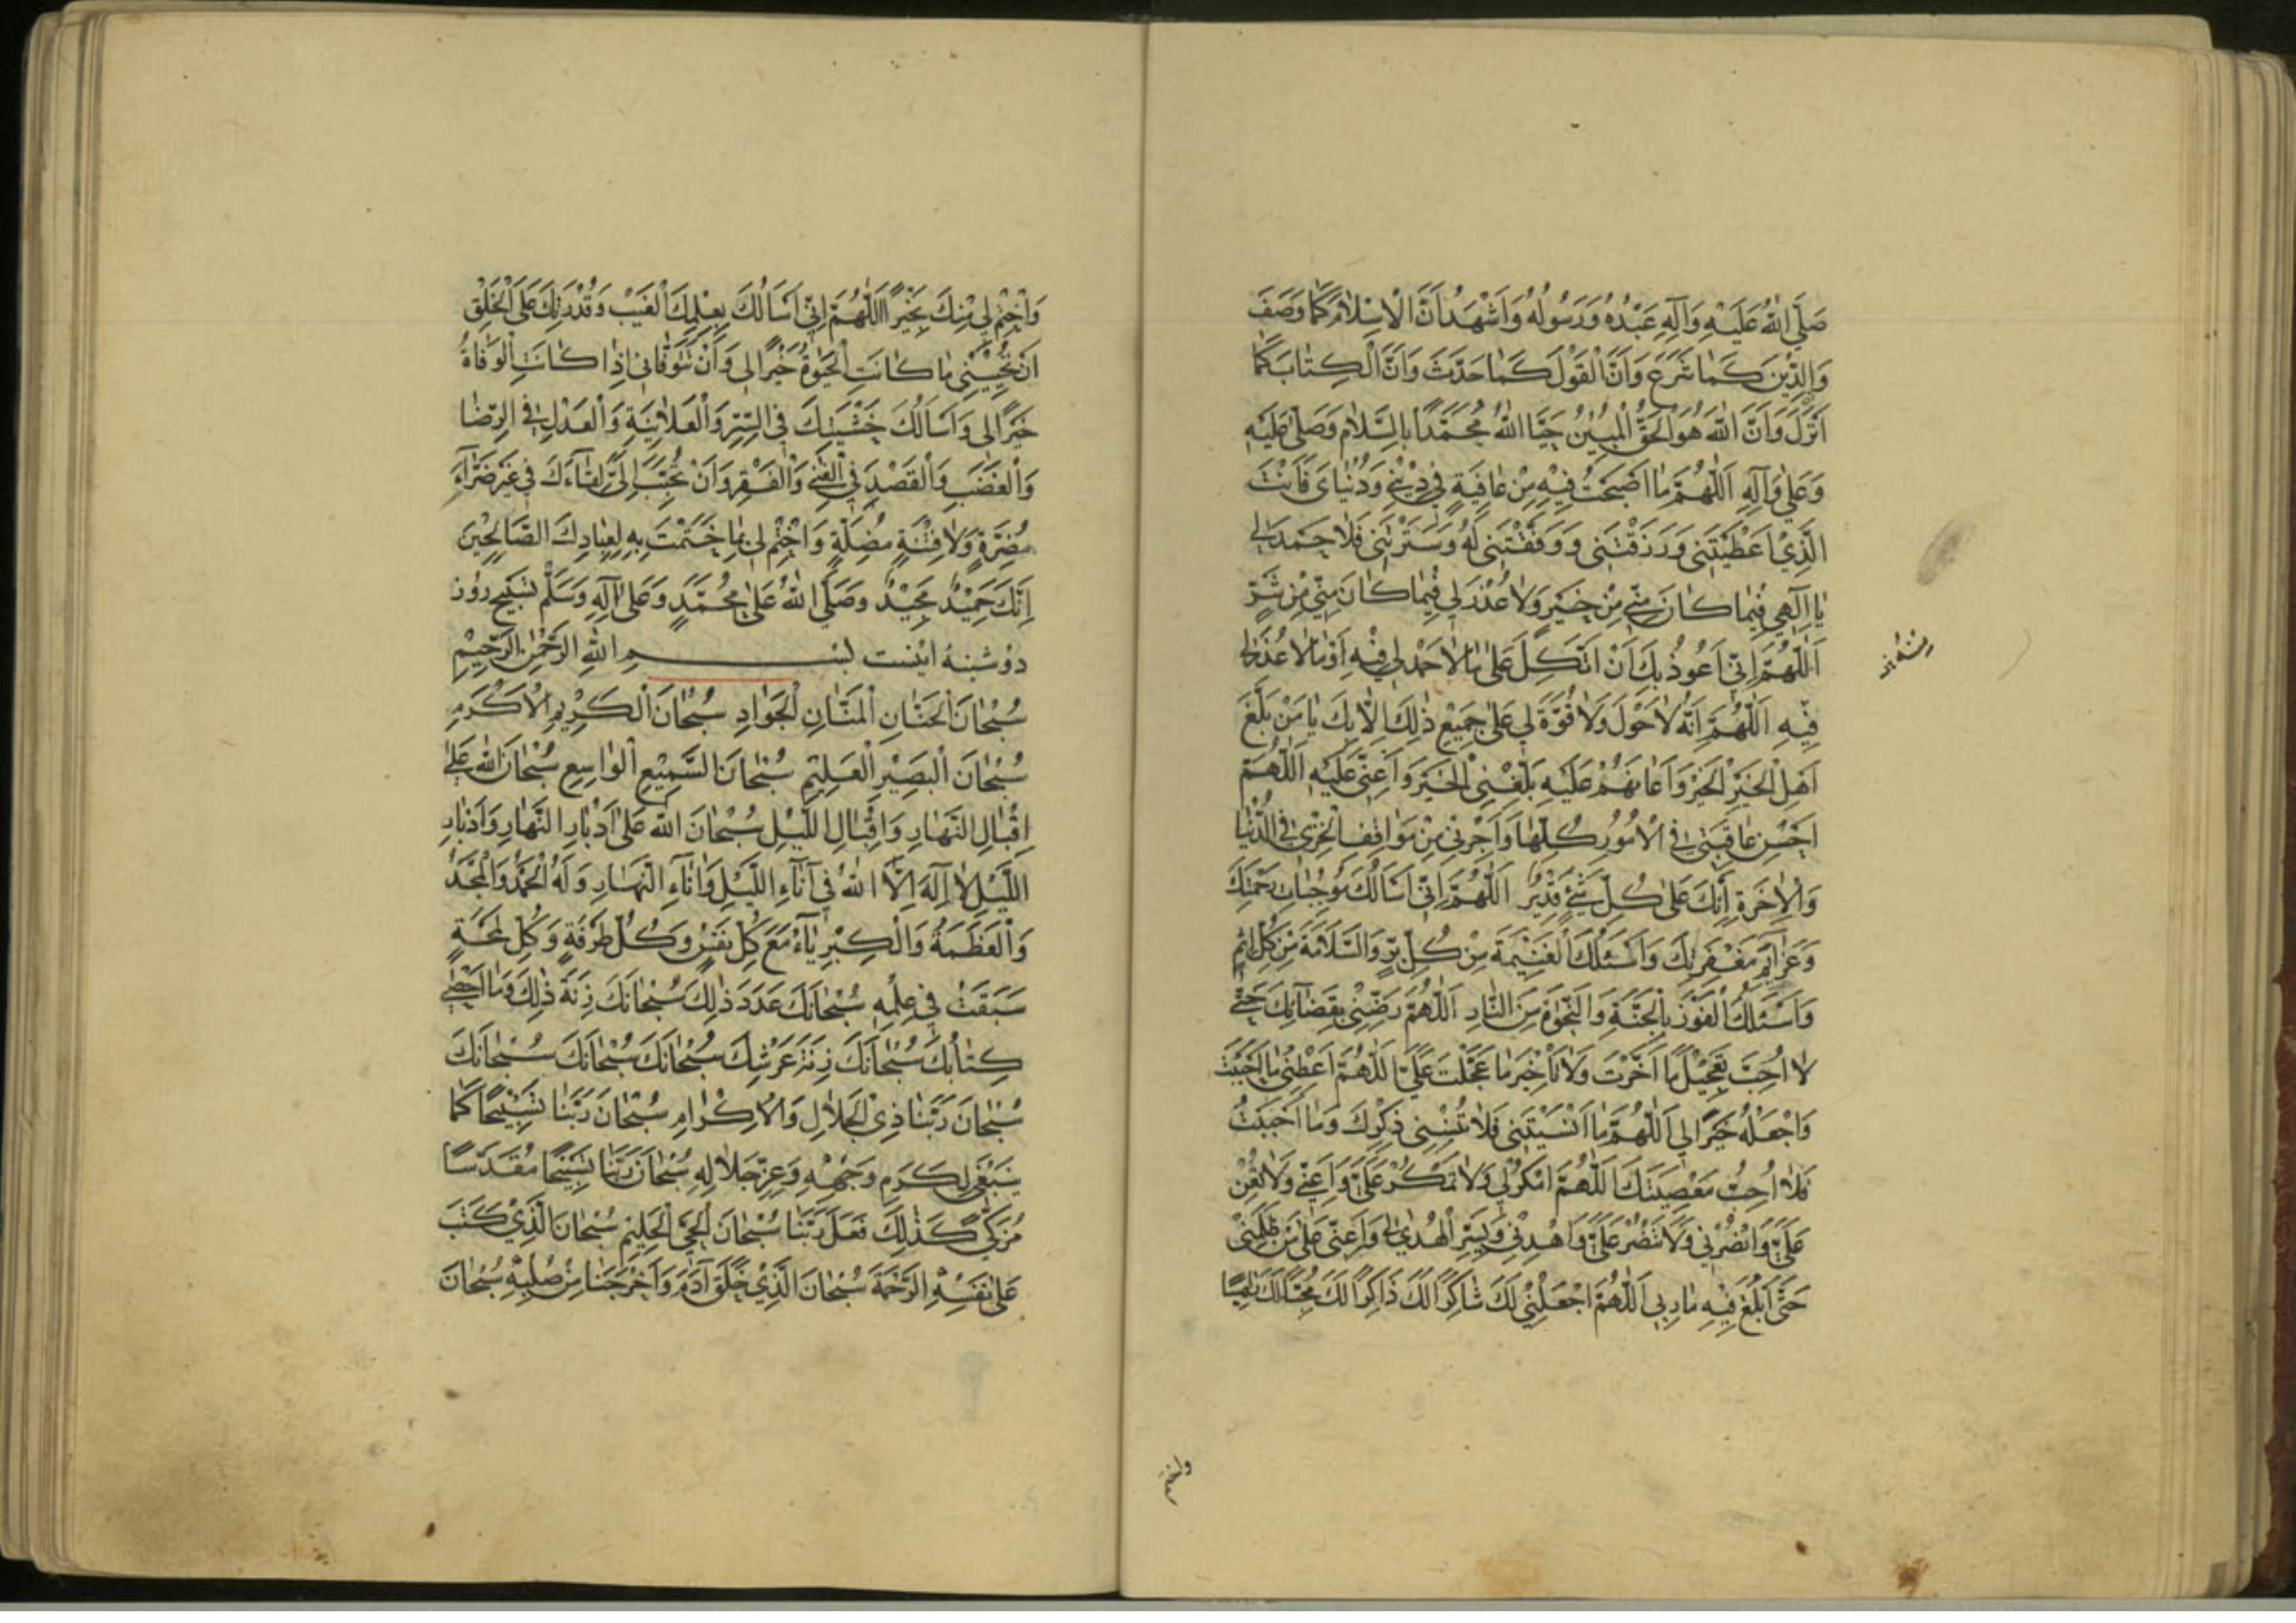 صَلَّى اللهُ عَلَيْهِ وَآلِهِ عَبْدُهُ وَرَسُولُهُ وَاَشْهَدُ اَنَّ الْاِسْلَامَ كَمَا وَصَفَ
وَالدِّيْنَ كَمَا شَرَعَ وَاَنَّ الْقَوْلَ كَمَا حَدَّثَ وَاَنَّ الْكِتَابَ كَمَا
اَنْزَلَ وَاَنَّ اللهَ هُوَ الْحَقُّ الْمُبِيْنُ حَيَّا اللهُ مُحَمَّدًا بِالسَّلَامِ وَصَلَّى عَلَيْهِ
وَعَلَى وَآلِهِ اَللّٰهُمَّ مَا اَصْبَحْتُ فِيْهِ مِنْ عَافِيَةٍ فِي دِيْنِيْ وَدُنْيَايَ فَاَنْتَ
الَّذِيْ اَعْطَيْتَنِي وَرَزَقْتَنِي وَوَفَّقْتَنِي لَهُ وَسَتَرْتَنِي فَلَا حَمْدَ لِي
يَا اِلٓهِي فِيْمَا كَانَ مِنِّي مِنْ خَيْرٍ وَلَا عُذْرَ لِي فِيْمَا كَانَ مِنِّي مِنْ شَرٍّ
اَللّٰهُمَّ اِنِّي اَعُوذُ بِكَ اَنْ اَتَّكِلَ عَلَى مَا لَا حَمْدَ لِي فِيْهِ اَوْ مَا لَا عُذْرَ لِي
فِيْهِ اَللّٰهُمَّ اِنَّهُ لَا حَوْلَ وَلَا قُوَّةَ لِي عَلَى جَمِيْعِ ذٰلِكَ اِلَّا بِكَ يَا مَنْ بَلَّغَ
اَهْلَ الْخَيْرِ الْخَيْرَ وَاَعَانَهُمْ عَلَيْهِ بَلِّغْنِي الْخَيْرَ وَاَعِنِّي عَلَيْهِ اَللّٰهُمَّ
اَحْسِنْ عَاقِبَتِي فِي الْاُمُوْرِ كُلِّهَا وَاَجِرْنِي مِنْ مَوَاقِفِ الْخِزْيِ فِي الدُّنْيَا
وَالْاٰخِرَةِ اِنَّكَ عَلٰى كُلِّ شَيْءٍ قَدِيْرٌ اَللّٰهُمَّ اِنِّي اَسْاَلُكَ مُوْجِبَاتِ رَحْمَتِكَ
وَعَزَآئِمَ مَغْفِرَتِكَ وَاَسْئَلُكَ الْغَنِيْمَةَ مِنْ كُلِّ بِرٍّ وَالسَّلَامَةَ مِنْ كُلِّ اِثْمٍ
وَاَسْئَلُكَ الْفَوْزَ بِالْجَنَّةِ وَالنَّجٰوةَ مِنَ النَّارِ اَللّٰهُمَّ رَضِّنِي بِقَضَآئِكَ حَتّٰى
لَا اُحِبَّ تَعْجِيْلَ مَا اَخَّرْتَ وَلَا تَأْخِيْرَ مَا عَجَّلْتَ عَلَيَّ اَللّٰهُمَّ اَعْطِنِي مَا اَحْبَبْتُ
وَاجْعَلْهُ خَيْرًا لِي اَللّٰهُمَّ مَا اَنْسَيْتَنِي فَلَا تُنْسِنِي ذِكْرَكَ وَمَا اَحْبَبْتُ
فَلَا اُحِبُّ مَعْصِيَتَكَ اَللّٰهُمَّ امْكُرْ لِي وَلَا تَمْكُرْ عَلَيَّ وَاَعِنِّي وَلَا تُعِنْ
عَلَيَّ وَانْصُرْنِي وَلَا تَنْصُرْ عَلَيَّ وَاهْدِنِي وَيَسِّرِ الْهُدٰى لِي وَاَعِنِّي عَلٰى مَنْ ظَلَمَنِي
حَتَّى اَبْلُغَ فِيْهِ مَارِبِي اَللّٰهُمَّ اجْعَلْنِي لَكَ شَاكِرًا لَكَ ذَاكِرًا لَكَ مُحِبًّا لَكَ رَاهِبًا
واختم
وَاخْتِمْ لِي مِنْكَ بِخَيْرٍ اَللّٰهُمَّ اِنِّي اَسْاَلُكَ بِعِلْمِكَ الْغَيْبَ وَقُدْرَتِكَ عَلَى الْخَلْقِ
اَنْ تُحْيِيَنِي مَا كَانَتِ الْحَيٰوةُ خَيْرًا لِي وَاَنْ تَتَوَفَّانِي اِذَا كَانَتِ الْوَفَاةُ
خَيْرًا لِي وَاَسْاَلُكَ خَشْيَتَكَ فِي السِّرِّ وَالْعَلَانِيَةِ وَالْعَدْلَ فِي الرِّضَا
وَالْغَضَبِ وَالْقَصْدَ فِي الْغِنٰى وَالْفَقْرِ وَاَنْ تُحَبِّبَ اِلَيَّ لِقَآءَكَ فِي غَيْرِ ضَرَّآءَ
مُضِرَّةٍ وَلَا فِتْنَةٍ مُضِلَّةٍ وَاخْتِمْ لِي بِمَا خَتَمْتَ بِهِ لِعِبَادِكَ الصَّالِحِيْنَ
اِنَّكَ حَمِيْدٌ مَجِيْدٌ وَصَلَّى اللهُ عَلٰى مُحَمَّدٍ وَعَلٰى آلِهِ وَسَلَّمَ تسبیح روز
دوشنبه اینست بسم اللهِ الرَّحْمٰنِ الرَّحِيْمِ
سُبْحَانَ الْحَنَّانِ الْمَنَّانِ الْجَوَادِ سُبْحَانَ الْكَرِيْمِ الْاَكْرَمِ
سُبْحَانَ الْبَصِيْرِ الْعَلِيْمِ سُبْحَانَ السَّمِيْعِ الْوَاسِعِ سُبْحَانَ اللهِ عَلٰى
اِقْبَالِ النَّهَارِ وَاِقْبَالِ اللَّيْلِ سُبْحَانَ اللهِ عَلٰى اِدْبَارِ النَّهَارِ وَاِدْبَارِ
اللَّيْلِ لَا اِلٰهَ اِلَّا اللهُ فِي آنَآءِ اللَّيْلِ وَاٰنَآءِ النَّهَارِ وَلَهُ الْحَمْدُ وَالْمَجْدُ
وَالْعَظَمَةُ وَالْكِبْرِيَآءُ مَعَ كُلِّ نَفَسٍ وَكُلِّ طَرْفَةٍ وَكُلِّ لَمْحَةٍ
سَبَقَتْ فِي عِلْمِهِ سُبْحَانَكَ عَدَدَ ذٰلِكَ سُبْحَانَكَ زِنَةَ ذٰلِكَ وَمَا اَحْصٰى
كِتَابُكَ سُبْحَانَكَ زِنَةَ عَرْشِكَ سُبْحَانَكَ سُبْحَانَكَ سُبْحَانَكَ
سُبْحَانَ رَبِّنَا ذِي الْجَلَالِ وَالْاِكْرَامِ سُبْحَانَ رَبِّنَا تَسْبِيْحًا كَمَا
يَنْبَغِي لِكَرَمِ وَجْهِهِ وَعِزِّ جَلَالِهِ سُبْحَانَ رَبِّنَا تَسْبِيْحًا مُقَدَّسًا
مُزَكًّى كَذٰلِكَ فَعَلَ رَبُّنَا سُبْحَانَ الْحَيِّ الْحَلِيْمِ سُبْحَانَ الَّذِيْ كَتَبَ
عَلٰى نَفْسِهِ الرَّحْمَةَ سُبْحَانَ الَّذِيْ خَلَقَ آدَمَ وَاَخْرَجَنَا مِنْ صُلْبِهِ سُبْحَانَ